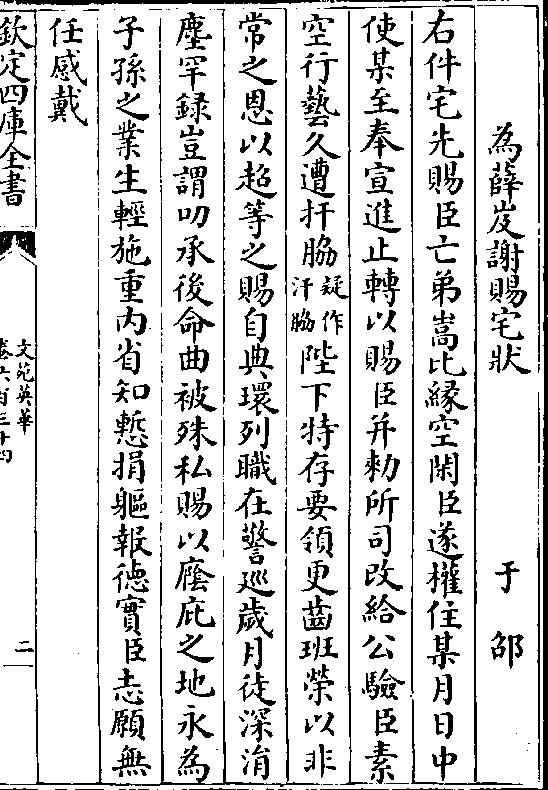 為薛岌謝賜宅狀　于邵
右件宅先賜臣亡弟嵩比緣空閑臣遂權住某月日中
使某至奉宣進止轉以賜臣并勑所司改給公驗臣素
空行藝久遭扞脇疑作汗脇陛下特存要領更齒班榮以非
常之恩以超等之賜自典環列職在警巡歲月徒深涓
塵罕録豈謂叨承後命曲被殊私賜以廕庇之地永為
子孫之業生輕施重内省知慙捐軀報德實臣志願無
任感戴
欽定四庫全書
文苑英華
卷六百三十四
二